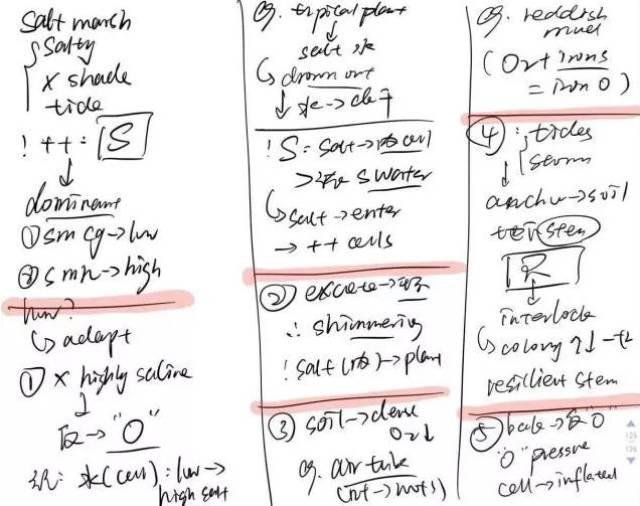 Salt marsh
salty
x shade
tide
! ++ = S
↓
dominant
① sm cg → low
② smh → high
how?
↳ adapt
① x highly saline
↓
反 → "O"
水(cell): low →
high salt
eg. typical plant
↓
salt 水
↳ drown out
↓ 水 →
! S = salt → cell
water
↳ salt → enter
→ ++ cells
② excrete →
∴ shimmering
! salt → plant
③ soil → dense
O₂↓
eg. air tube
eg. reddish
mud
(O₂ + irons
= iron O)
④ : tides
storm
↓
anchor → soil
stem
R
↓
interlock
↳ colony ↑↓
resillient stem
⑤ → 反 "O"
"O" pressure
cell → inflated
125
126